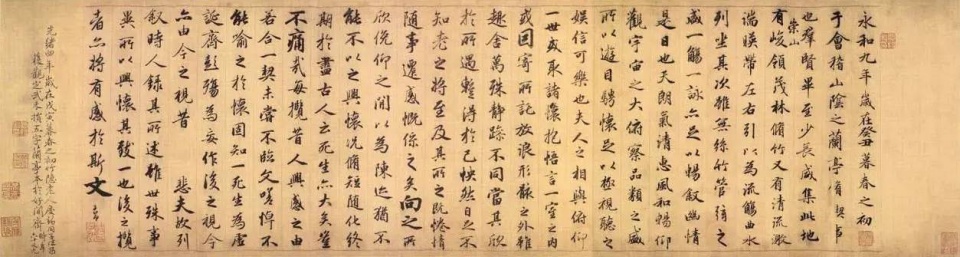 永和九年歲在癸丑暮春之初
于會稽山陰之蘭亭脩稧事
也群賢畢至少長咸集此地
有崇山峻領茂林脩竹又有清流激
湍暎帶左右引以為流觴曲水
列坐其次雖無絲竹管弦之
盛一觴一詠亦足以暢敘幽情
是日也天朗氣清惠風和暢仰
觀宇宙之大俯察品類之盛
所以遊目騁懷足以極視聽之
娛信可樂也夫人之相與俯仰
一世或取諸懷抱悟言一室之內
或因寄所託放浪形骸之外雖
趣舍萬殊靜躁不同當其欣
於所遇蹔得於己怏然自足不
知老之將至及其所之既惓情
隨事遷感慨係之矣向之所
欣俛仰之閒以為陳迹猶不
能不以之興懷況脩短隨化終
期於盡古人云死生亦大矣豈
不痛哉每攬昔人興感之由
若合一契未嘗不臨文嗟悼不
能喻之於懷固知一死生為虛
誕齊彭殤為妄作後之視今
亦由今之視昔 悲夫故列
敘時人錄其所述雖世殊事
異所以興懷其致一也後之攬
者亦將有感於斯文
光緒四年歲在戊寅暮春之初竹隱老人